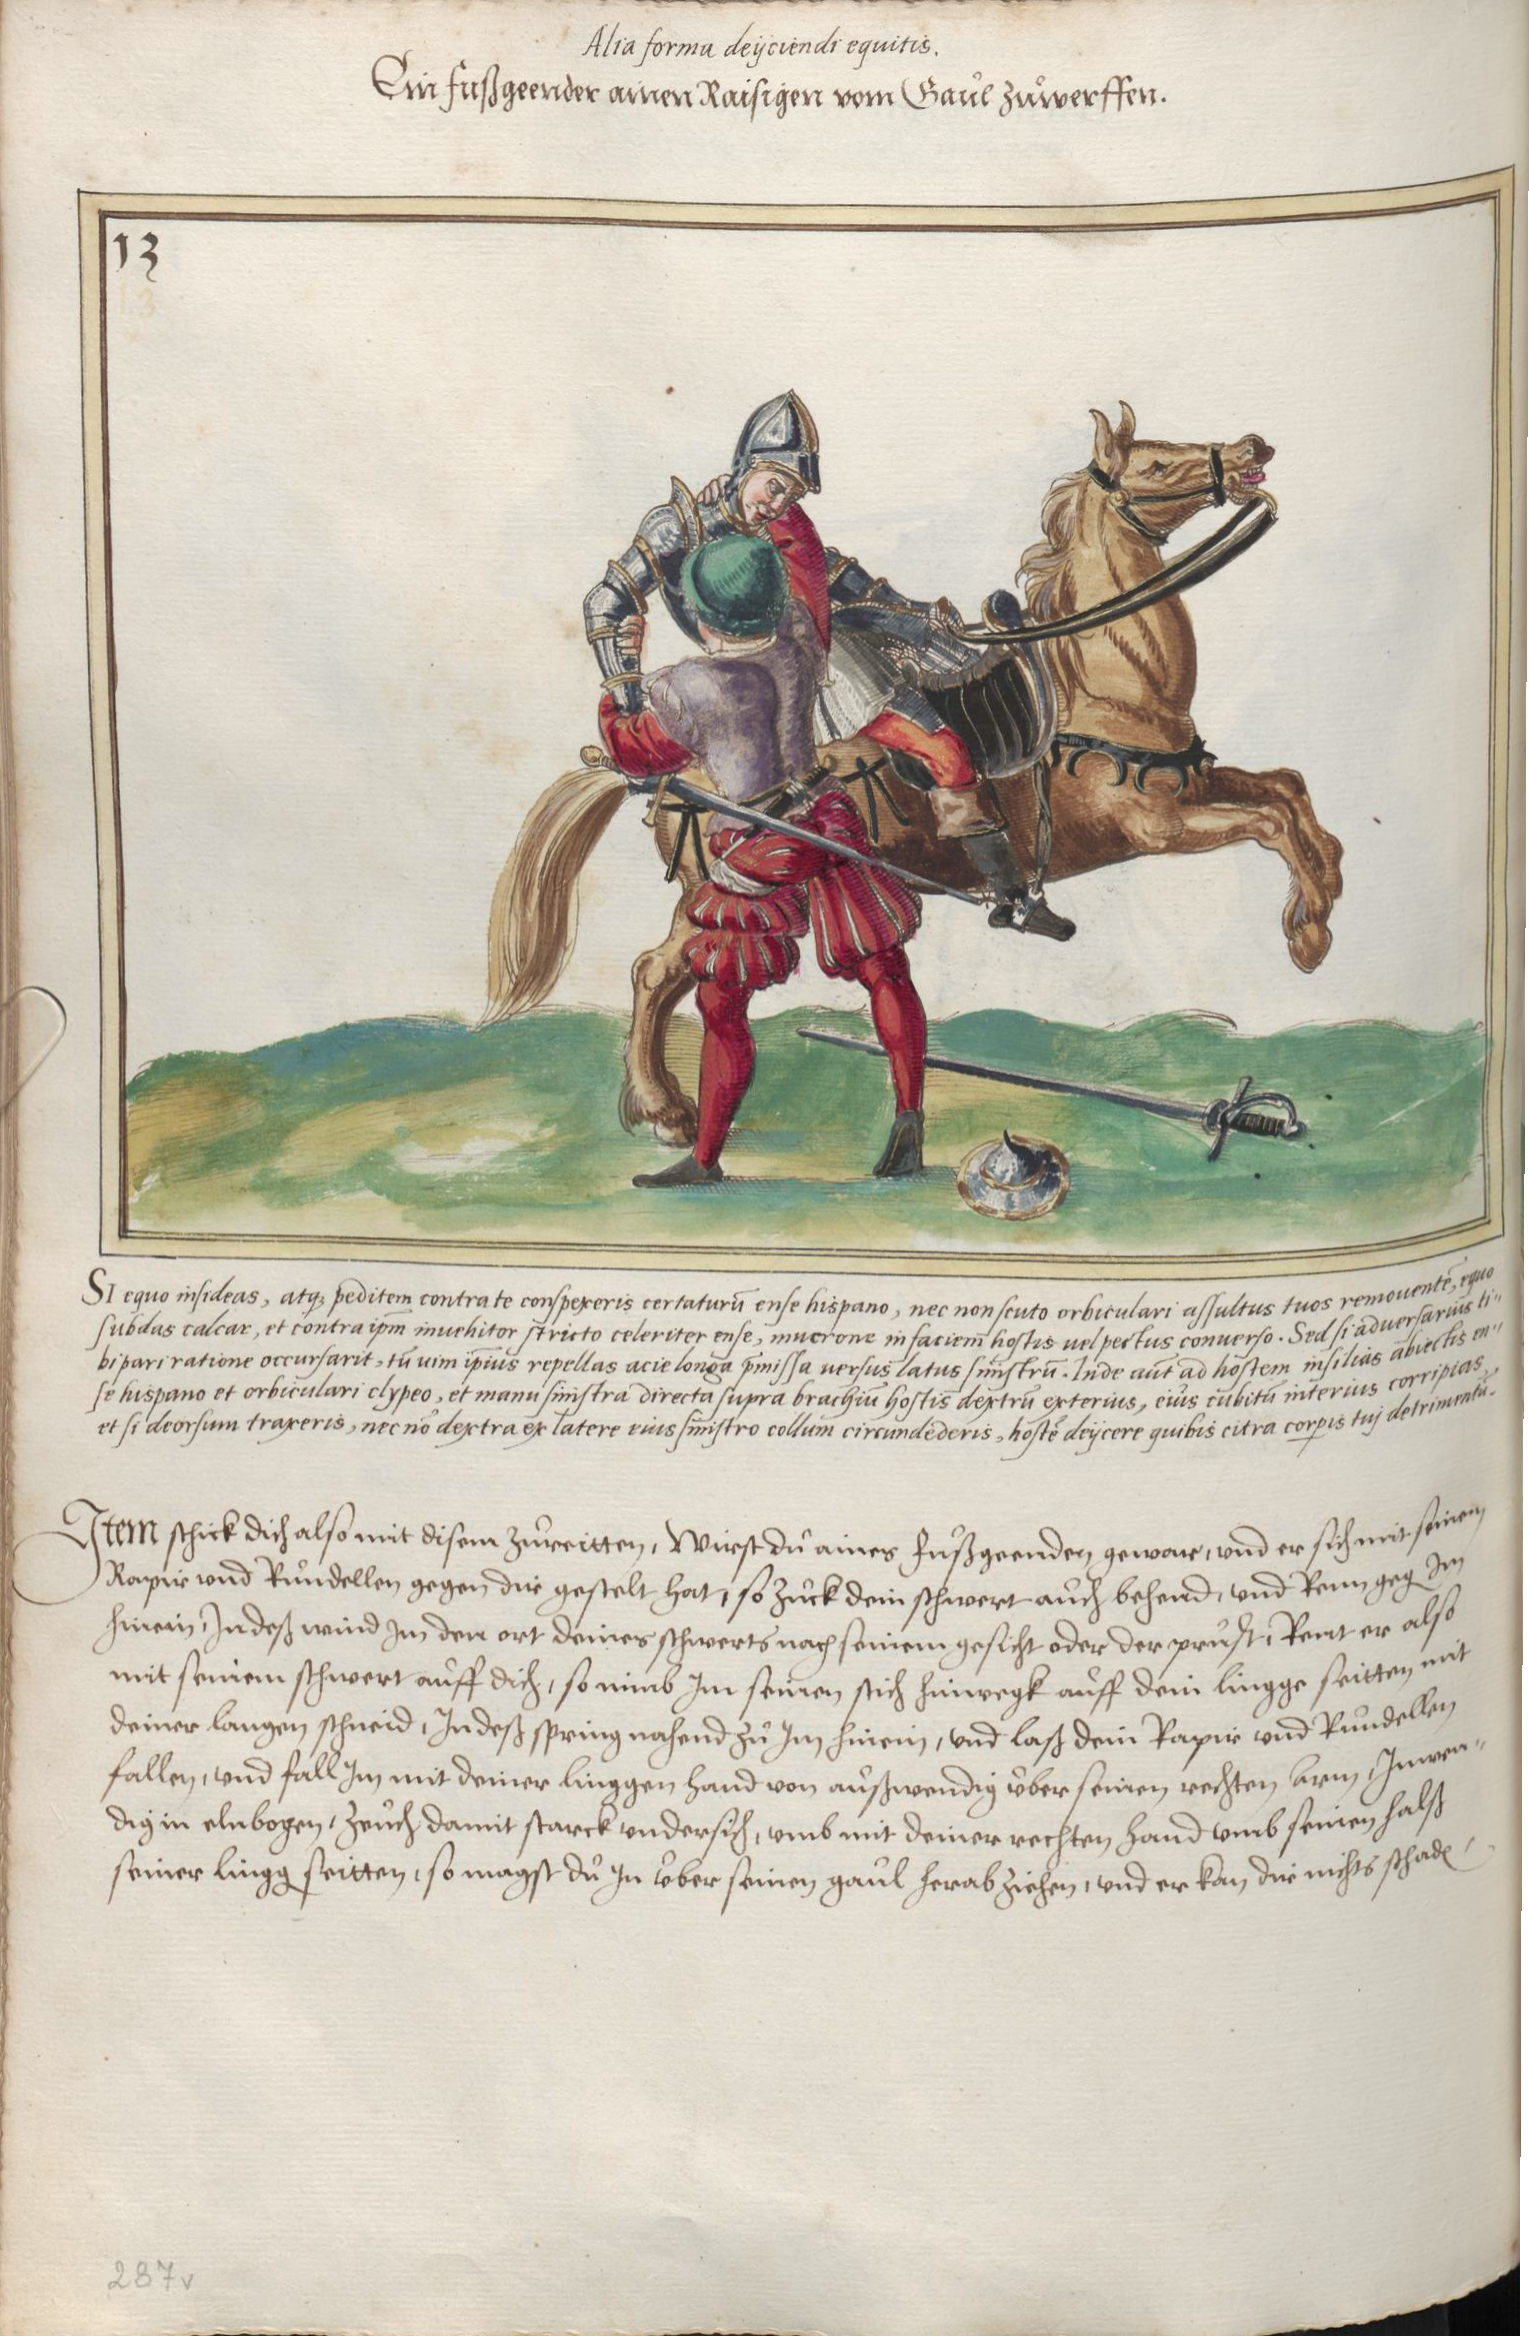 Alia forma deijciendi equitis.
Ein fußgeender ainen Raisigen vom Gaůl zůwerffen.
13
SI equo insideas, atq; peditem contra te conspexeris certaturū ense hispano, nec non scuto orbiculari assultus tuos remouentē, equo
subdas calcar, et contra ipm̄ inuehitor stricto celeriter ense, mucrone in faciem hostis uel pectus conuerso. Sed si aduersarius ti-
bi pari ratione occursarit, tū uim ipius repellas acie longa p̄missa uersus latus sinistrū. Inde aūt ad hostem insilias abiectis en-
se hispano et orbiculari clypeo, et manu sinistra directa supra brachiū hostis dextrū exterius, eius cubitū interius corripias,
et si deorsum traxeris, nec nō dextra ex latere eius sinistro collum circundederis, hostē deijcere quibis citra corpis tuj detrimentū.
Item schick dich also mit disem zůreitten, Würst dů aines fůßgeenden gewar, vnd er sich mit seinem
Rapir vnd Růndellen gegen dir gestelt hat, so zůck dein schwert aůch behend, vnd Renn geg Im
hinein, Indeß wind Im den ort deines schwerts nach seinem gesicht oder der průst, Rent er also
mit seinem schwert aůff dich, so nimb Im seinen stich hinwegk aůff dein lingge seitten mit
deiner langen schneid, Indeß spring nahend zů Im hinein, vnd laß dein Rapir vnd Růndellen
fallen, vnd fall Im mit deiner linggen hand von aůßwendig vber seinen rechten arm, Inwen-
dig in elnbogen, zeůch damit starck vndersich, vmb mit deiner rechten hand vmb seinen halß
seiner lingg seitten, so magst dů In vber seinen gaůl herab ziehen, vnd er kan dir nichts schadē
287v